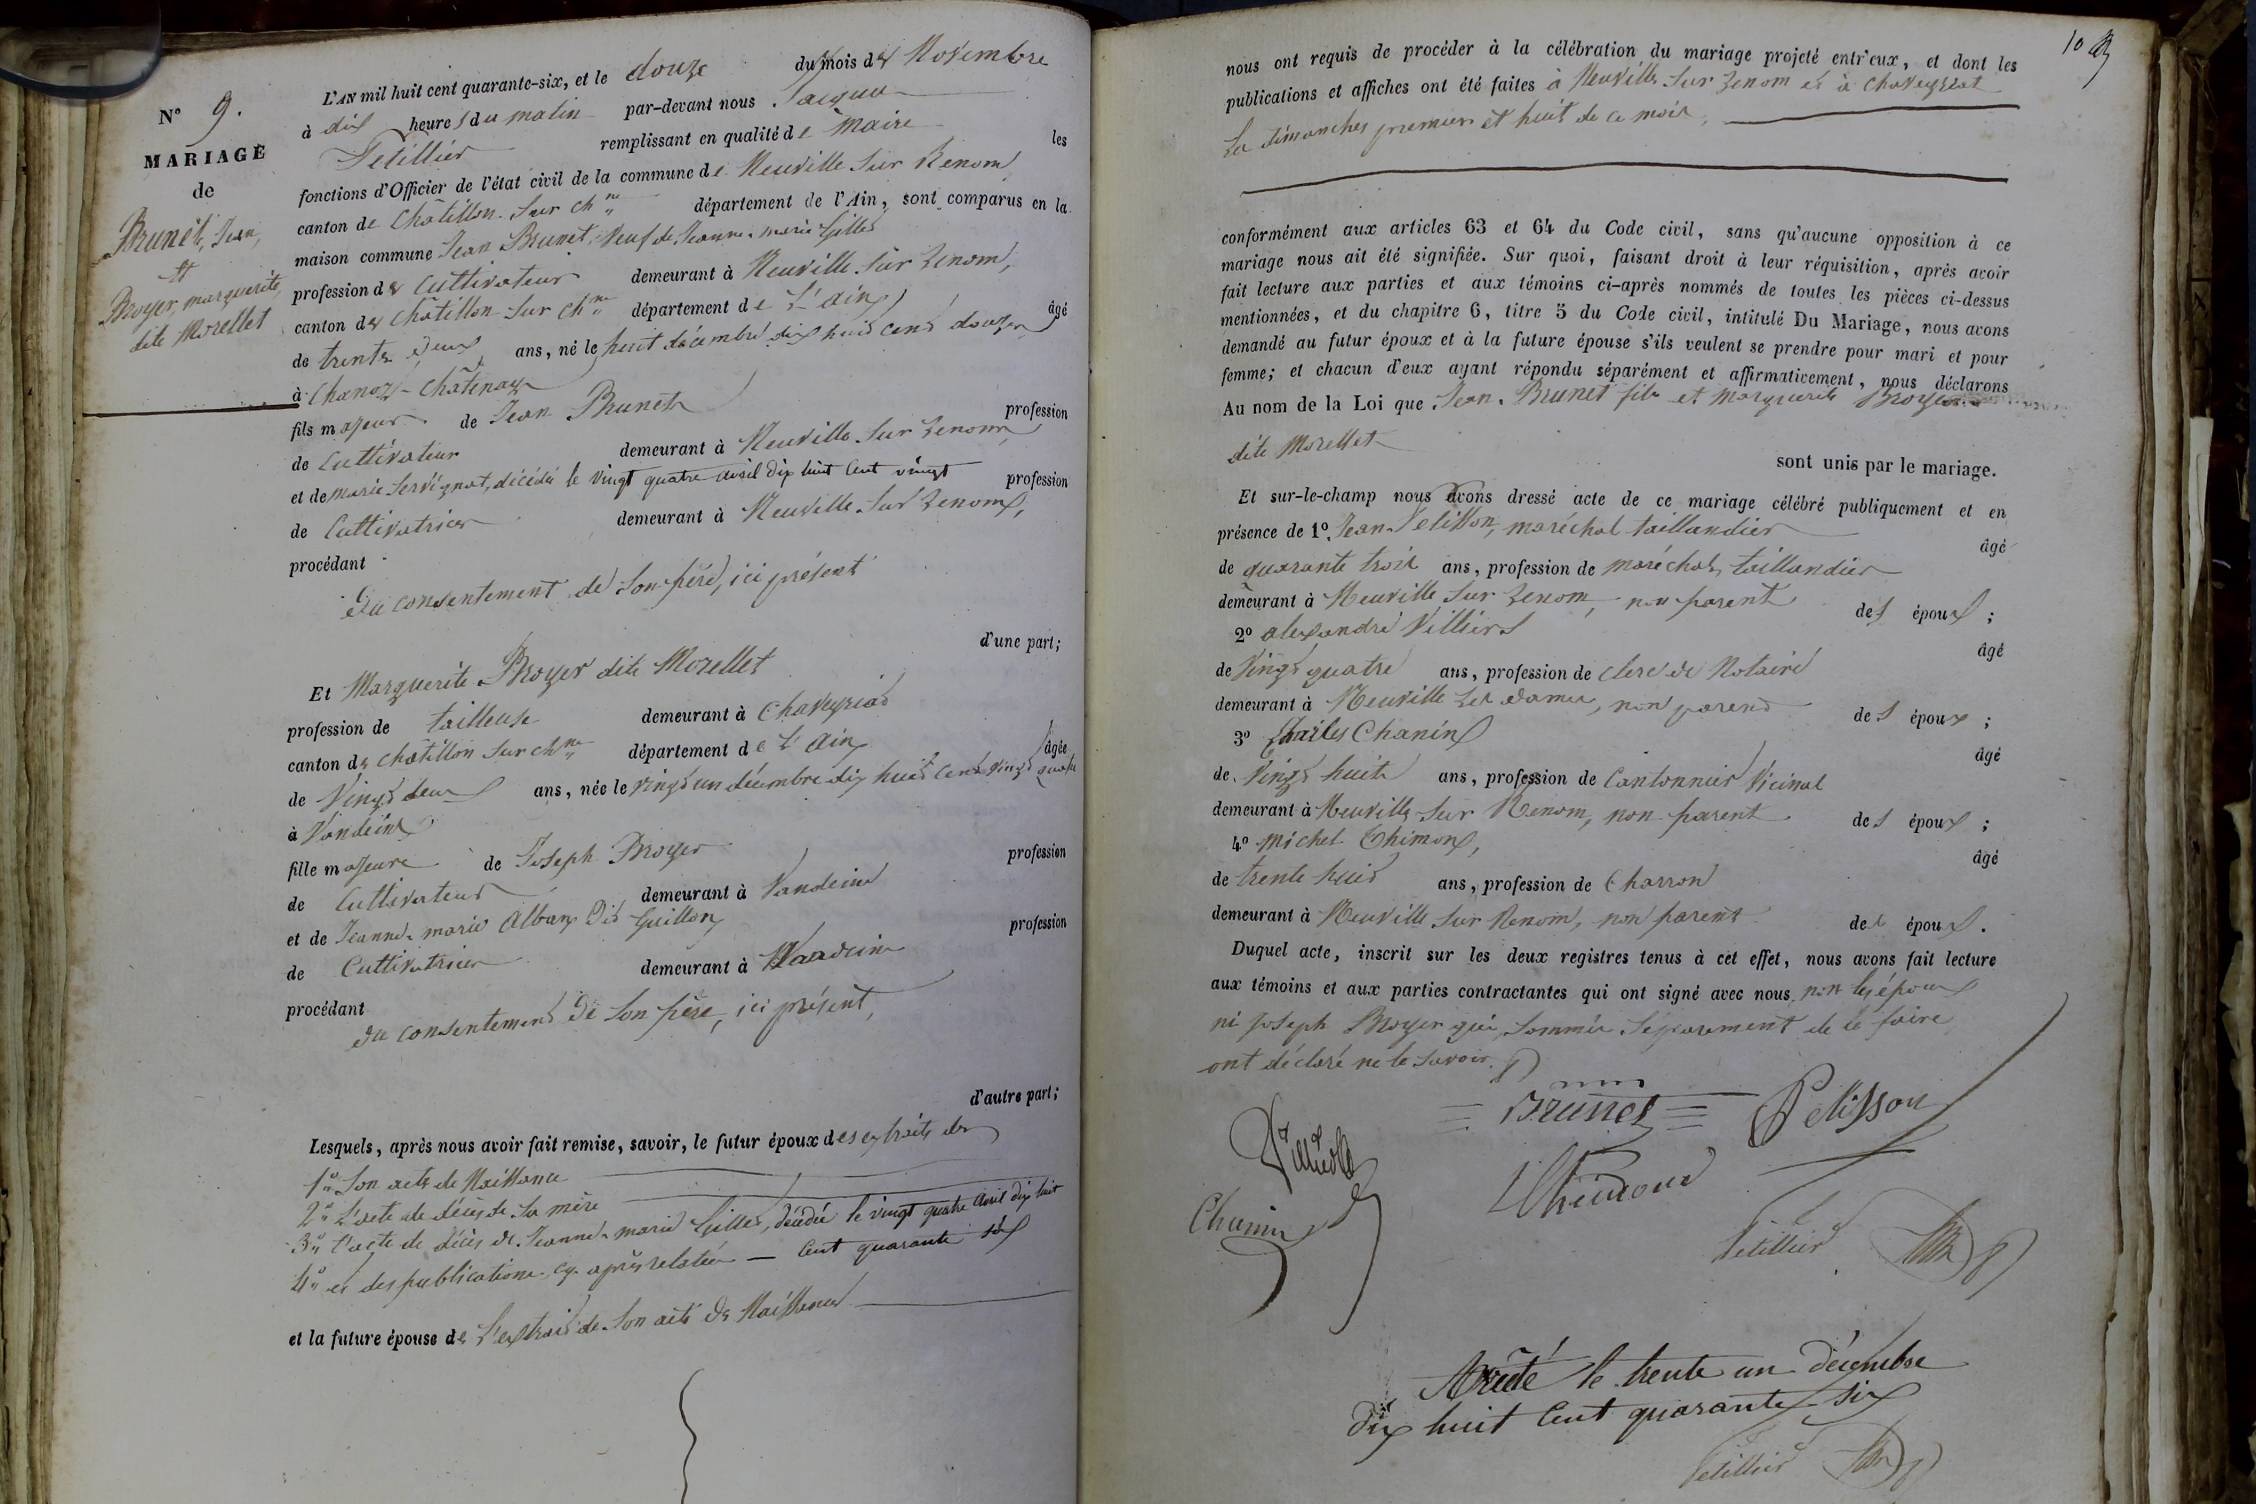 N° 9.
MARIAGE
de
Brunet, Jean,
et
Broyer, marguerite,
dite Morellet
L'AN mil huit cent quarante-six, et le douze du mois de Novembre
à dix heures du matin par-devant nous Jacques
Petillier remplissant en qualité de maire les
fonctions d'Officier de l'état civil de la commune de Neuville Sur Renom,
canton de Châtillon Sur Ch.ne département de l'Ain, sont comparus en la
maison commune Jean Brunet, Veuf de Jeanne-marie Gilles
profession de Cultivateur demeurant à Neuville Sur Renom,
canton de Châtillon Sur Ch.ne département de L'ain, âgé
de trente deux ans, né le huit décembre dix huit cent douze
à Chanoz-Châtenay
fils majeur de Jean Brunet profession
de Cultivateur demeurant à Neuville Sur Renom,
et de marie Servignat, décédée le vingt quatre avril dix huit cent vingt profession
de Cultivatrice demeurant à Neuville Sur Renom,
procédant
du consentement de Son père, ici présent
d'une part;
Et Marguerite Broyer dite Morellet
profession de tailleuse demeurant à Chaveyriat
canton de Châtillon Sur ch.ne département de L'ain âgée
de Vingt deux ans, née le vingt un décembre dix huit cent vingt quatre
à Vandeins
fille majeure de Joseph Broyer profession
de Cultivateur demeurant à Vandeins
et de Jeanne-marie Alban dit Guillon profession
de Cultivatrice demeurant à Vandeins
procédant
du consentement de Son père, ici présent,
d'autre part;
Lesquels, après nous avoir fait remise, savoir, le futur époux des extraits de
1° Son acte de Naissance
2° L'acte de décès de Sa mère
3° l'acte de décès de Jeanne-marie Gilles, décédée le vingt quatre avril dix huit
4° et des publications cy-après relatées — Cent quarante six
et la future épouse de L'extrait de Son acte de Naissance
10
nous ont requis de procéder à la célébration du mariage projeté entr'eux, et dont les
publications et affiches ont été faites à Neuville Sur Renom et à Chaveyriat
Les dimanches premier et huit de ce mois,
conformément aux articles 63 et 64 du Code civil, sans qu'aucune opposition à ce
mariage nous ait été signifiée. Sur quoi, faisant droit à leur réquisition, après avoir
fait lecture aux parties et aux témoins ci-après nommés de toutes les pièces ci-dessus
mentionnées, et du chapitre 6, titre 5 du Code civil, intitulé Du Mariage, nous avons
demandé au futur époux et à la future épouse s'ils veulent se prendre pour mari et pour
femme; et chacun d'eux ayant répondu séparément et affirmativement, nous déclarons
Au nom de la Loi que Jean Brunet fils et Marguerite Broyer
dite Morellet
sont unis par le mariage.
Et sur-le-champ nous avons dressé acte de ce mariage célébré publiquement et en
présence de 1° Jean Pelisson, maréchal taillandier âgé
de quarante trois ans, profession de maréchal taillandier
demeurant à Neuville Sur Renom, non parent des époux;
2° alexandre Villiers âgé
de Vingt quatre ans, profession de clerc de Notaire
demeurant à Neuville Les dames, non parent des époux;
3° Charles Chanin âgé
de Vingt huit ans, profession de Cantonnier Vicinal
demeurant à Neuville Sur Renom, non parent des époux;
4° Michel Thimon, âgé
de trente huit ans, profession de Charron
demeurant à Neuville Sur Renom, non parent des époux.
Duquel acte, inscrit sur les deux registres tenus à cet effet, nous avons fait lecture
aux témoins et aux parties contractantes qui ont signé avec nous non les époux
ni Joseph Broyer qui, sommés Séparement de le faire
ont déclaré ne le Savoir.
Brunet Pelisson
Chanin
Petillier
Arreté le trente un décembre
dix huit Cent quarante six
Petillier